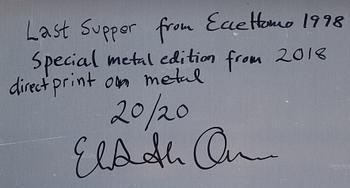 Last Supper from Ecce Homo 1998
Special metal edition from 2018
direct print on metal
20/20